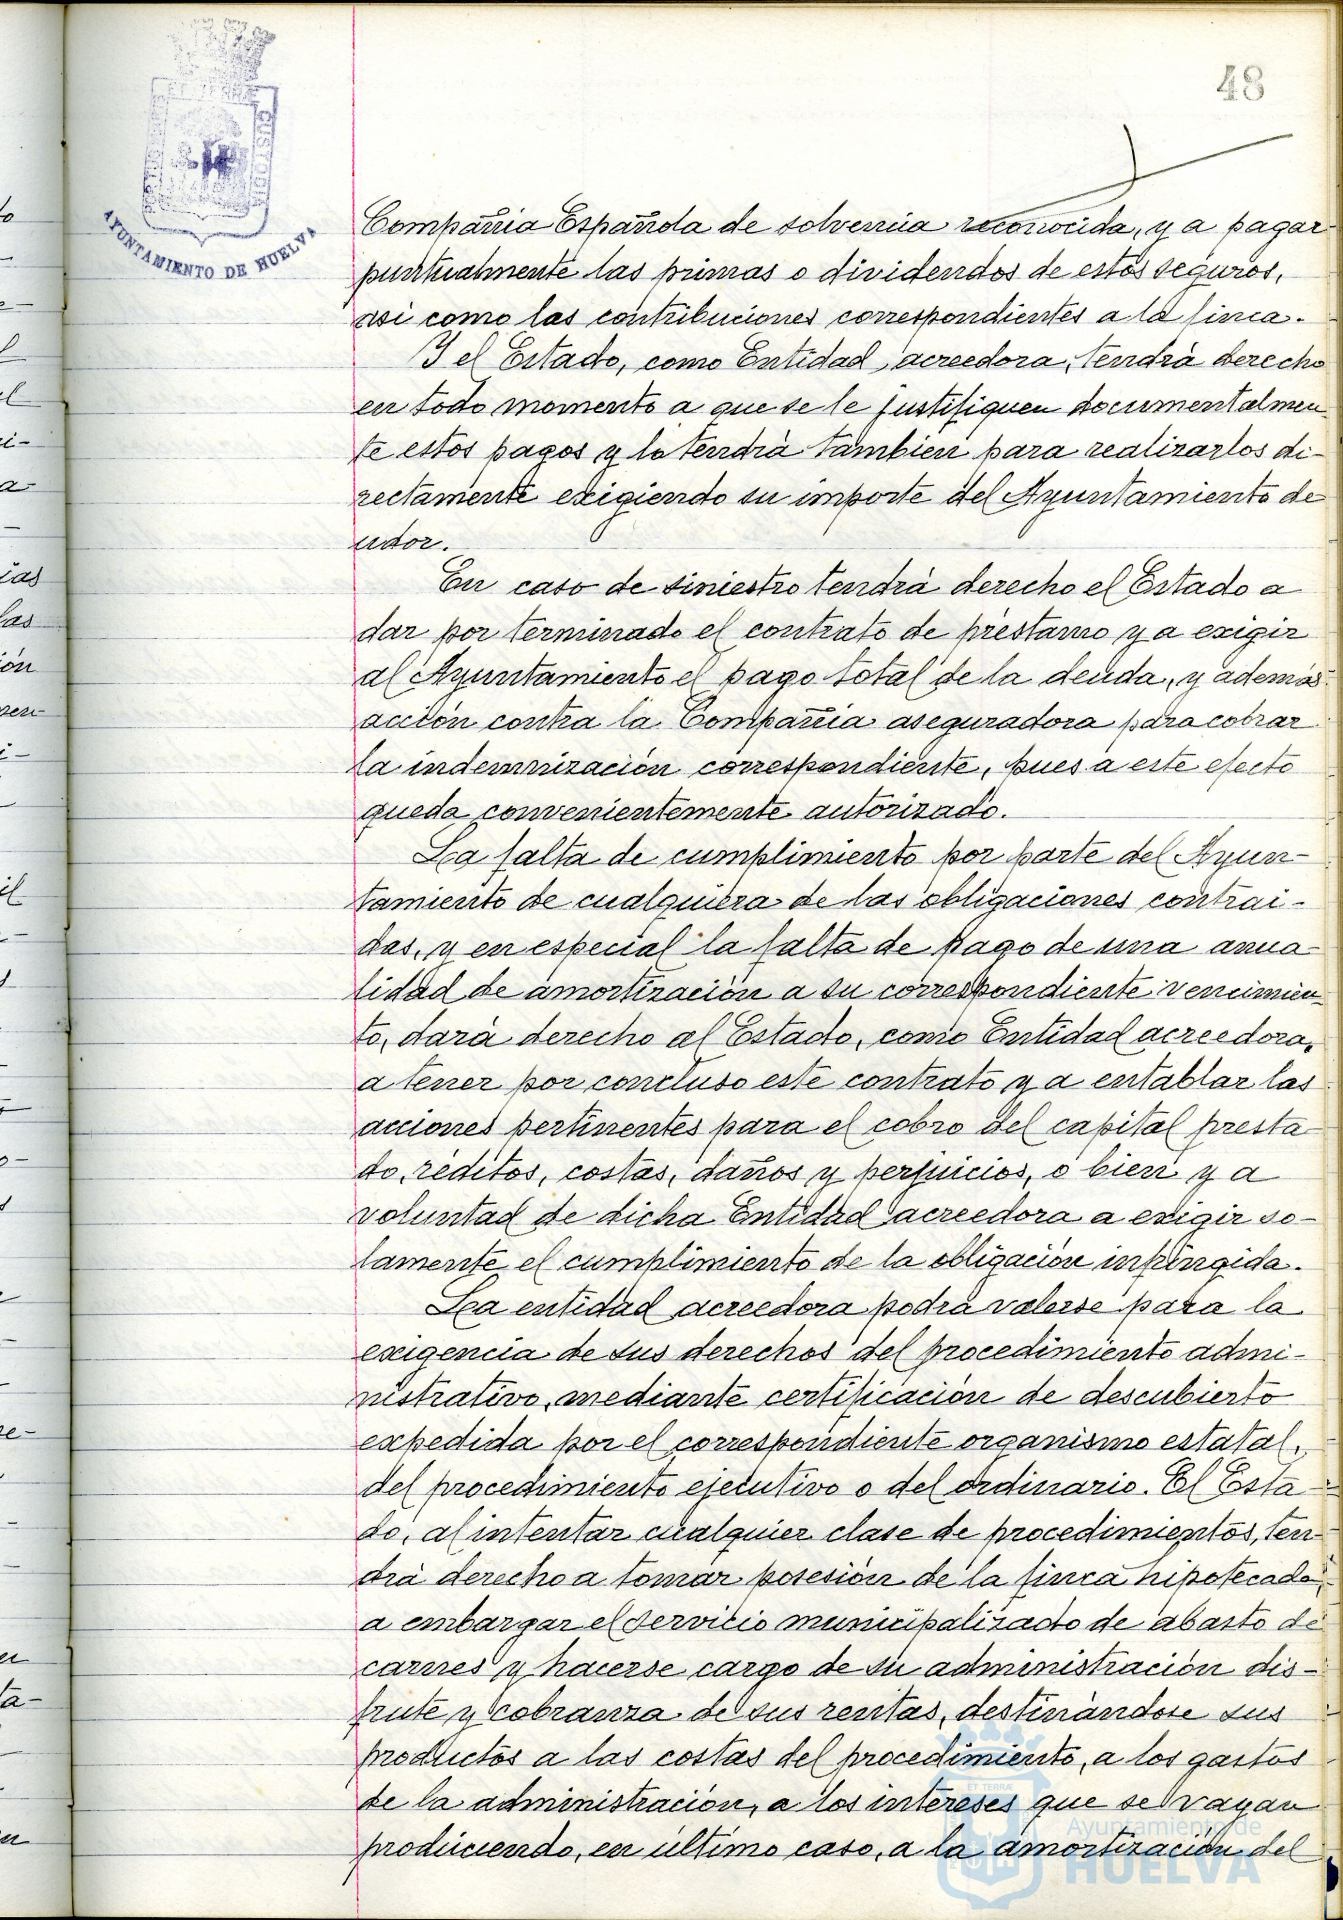 48
PORTUS MARIS ET TERRÆ CUSTODIA
AYUNTAMIENTO DE HUELVA
Compañia Española de solvencia reconocida, y a pagar
puntualmente las primas o dividendos de estos seguros,
asi como las contribuciones correspondientes a la finca.
Y el Estado, como Entidad acreedora, tendrà derecho
en todo momento a que se le justifiquen documentalmen-
te estos pagos y lo tendrà tambien para realizarlos di-
rectamente exigiendo su importe del Ayuntamiento de
udor.
En caso de siniestro tendrà derecho el Estado a
dar por terminado el contrato de préstamo y a exigir
al Ayuntamiento el pago total de la deuda, y además
acción contra la Compañia aseguradora para cobrar
la indemnización correspondiente, pues a este efecto
queda convenientemente autorizado.
La falta de cumplimiento por parte del Ayun-
tamiento de cualquiera de las obligaciones contrai-
das, y en especial la falta de pago de una anua-
lidad de amortización a su correspondiente vencimien-
to, darà derecho al Estado, como Entidad acreedora,
a tener por concluso este contrato y a entablar las
acciones pertinentes para el cobro del capital presta-
do, réditos, costas, daños y perjuicios, o bien y a
voluntad de dicha Entidad acreedora a exigir so-
lamente el cumplimiento de la obligación infringida.
La entidad acreedora podrà valerse para la
exigencia de sus derechos del procedimiento admi-
nistrativo, mediante certificación de descubierto
expedida por el correspondiente organismo estatal,
del procedimiento ejecutivo o del ordinario. El Esta-
do, al intentar cualquier clase de procedimientos, ten-
drà derecho a tomar posesión de la finca hipotecada,
a embargar el servicio municipalizado de abasto de
carnes y hacerse cargo de su administración dis-
frute y cobranza de sus rentas, destinàndose sus
productos a las costas del procedimiento, a los gastos
de la administración, a los intereses que se vayan
produciendo, en último caso, a la amortización del
Ayuntamiento de
HUELVA